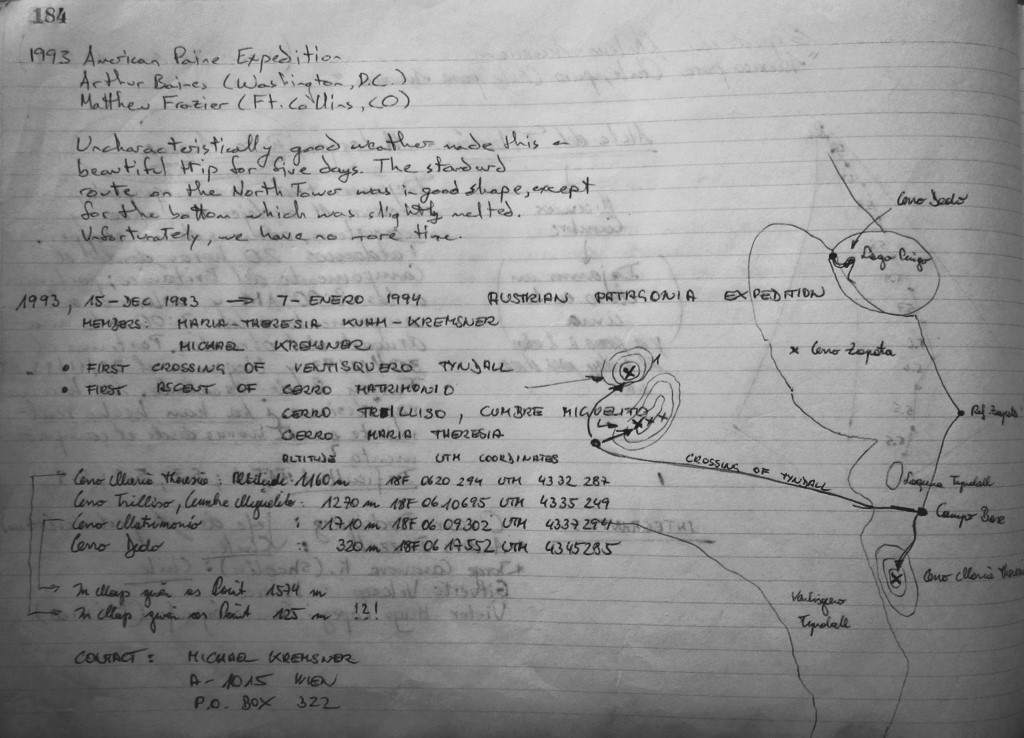 184
1993 American Paine Expedition
Arthur Baines (Washington, D.C.)
Matthew Frazier (Ft. Collins, CO)
Uncharacteristically good weather made this a
beautiful trip for five days. The standard
route on the North Tower was in good shape, except
for the bottom which was slightly melted.
Unfortunately, we have no more time.
1993, 15-DEC 1993 → 7-ENERO 1994 AUSTRIAN PATAGONIA EXPEDITION
MEMBERS: MARIA-THERESIA KUAM-KREMSNER
MICHAEL KREMSNER
• FIRST CROSSING OF VENTISQUERO TYNDALL
• FIRST ASCENT OF CERRO MATRIMONIO
CERRO TRILLISO, CUMBRE MIGUELITO
CERRO MARIA THERESIA
ALTITUDE UTM COORDINATES
Cerro Maria Theresia: Altitude: 1160 m 18F 0620 294 UTM 4332 287
Cerro Trilliso, Cumbre Miguelito: 1270 m 18F 06 10695 UTM 4335 249
Cerro Matrimonio : 1710 m 18F 06 09302 UTM 4337294
Cerro Dedo : 320 m 18F 06 17552 UTM 4345285
In Map given as Point 1574 m
In Map given as Point 125 m !?!
CONTACT: MICHAEL KREMSNER
A-1015 WIEN
P.O. BOX 322
Cerro Dedo
Lago Pingo
x Cerro Zapata
Ref. Zapata
CROSSING OF TYNDALL
Laguna Tyndall
Campo Base
Cerro Maria Theresia
Ventisquero
Tyndall